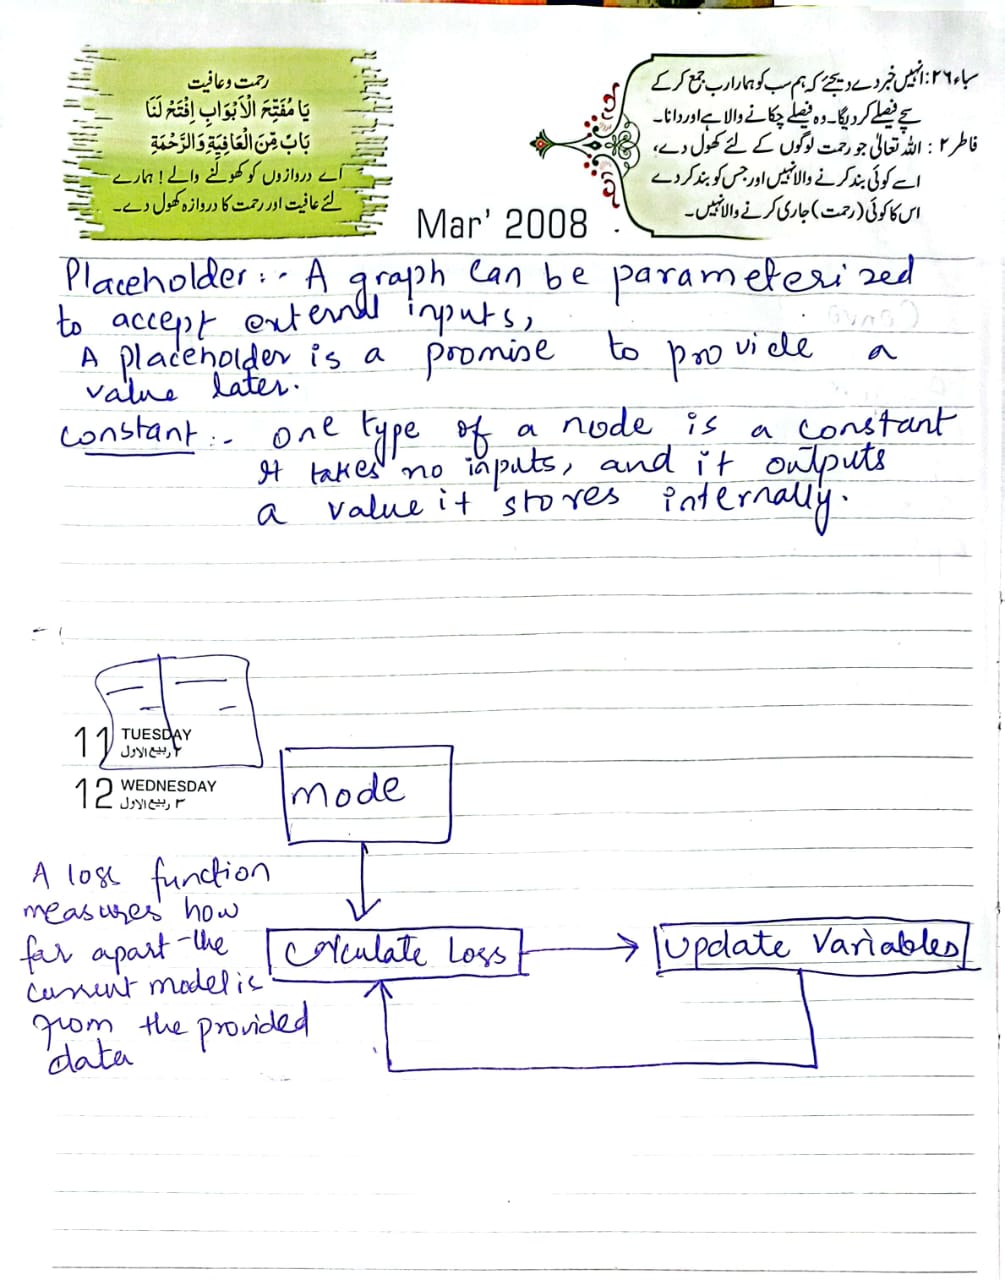 رحمت و عافیت
يَا مُفَتِّحَ الْاَبْوَابِ اِفْتَحْ لَنَا
بَابٌ مِّنَ الْعَافِيَةِ وَالرَّحْمَةِ
اے دروازوں کو کھولنے والے! ہمارے
لئے عافیت اور رحمت کا دروازہ کھول دے۔
سباء۲۶: انہیں خبر دے دیجئے کہ ہم سب کو ہمارا رب جمع کر کے
سچے فیصلے کر دیگا۔ وہ فیصلے چکانے والا ہے اور دانا۔
فاطر۲: اللہ تعالیٰ جو رحمت لوگوں کے لئے کھول دے،
اسے کوئی بند کرنے والا نہیں اور جس کو بند کر دے
اس کا کوئی (رحمت) جاری کرنے والا نہیں۔
Mar' 2008
Placeholder :- A graph can be parameterized
to accept external inputs,
A placeholder is a promise to provide a
value later.
Constant :- one type of a node is a constant
It takes no inputs, and it outputs
a value it stores internally.
11 TUESDAY
۲ ربیع الاول
12 WEDNESDAY
۳ ربیع الاول
mode
A loss function
measures how
far apart the
current model is
from the provided
data
Calculate Loss
Update Variables